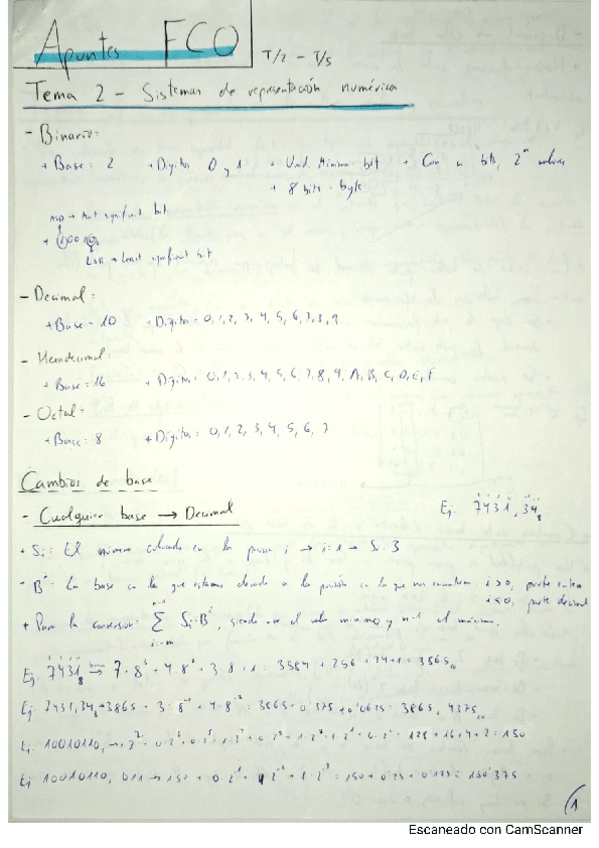 Apuntes FCO T/2 - T/5
Tema 2 - Sistemas de representación numérica
- Binario:
+ Base = 2 + Dígitos 0 y 1 + Unid. Mínima bit + Con n bits, 2ⁿ valores
+ 8 bits = byte
MSB → Most significant bit
LSB → Least significant bit
- Decimal:
+ Base = 10 + Dígitos = 0, 1, 2, 3, 4, 5, 6, 7, 8, 9
- Hexadecimal:
+ Base = 16 + Dígitos = 0, 1, 2, 3, 4, 5, 6, 7, 8, 9, A, B, C, D, E, F
- Octal:
+ Base = 8 + Dígitos = 0, 1, 2, 3, 4, 5, 6, 7
Cambios de base
- Cualquier base → Decimal Ej: 7431,34₈
+ Si: El número colocado en la posición i → i=1 → Si = 3
- Bⁱ: La base en la que estamos elevado a la posición en la que nos encontramos. i>0, parte entera
i<0, parte decimal
+ Para la conversión: Σ Si·Bⁱ, siendo -m el valor mínimo y n-1 el máximo.
Ej: 7431₈ → 7·8³ + 4·8² + 3·8 + 1 = 3584 + 256 + 24 + 1 = 3865₁₀
Ej: 7431,34₈ → 3865 + 3·8⁻¹ + 4·8⁻² = 3865 + 0'375 + 0'0625 = 3865,4375₁₀
Ej: 10010110, = 128 + 16 + 4 + 2 = 150
Ej: 10010110,011 → 150 + 0·2⁻¹ + 1·2⁻² + 1·2⁻³ = 150 + 0'25 + 0'125 = 150'375
1
Escaneado con CamScanner